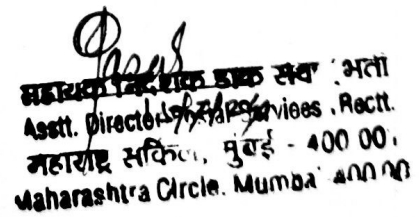 सहायक निदेशक डाक सेवा भर्ती
Asstt. Director Postal Services, Rectt.
महाराष्ट्र सर्किल, मुंबई - 400 00
Maharashtra Circle. Mumbai 400 00